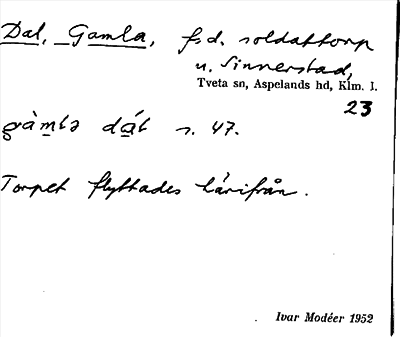 Dal, Gamla, f.d. soldattorp
u. Sinnerstad,
Tveta sn, Aspelands hd, Klm. l.
23
dál s. 47.
Torpet flyttades härifrån.
Ivar Modéer 1952